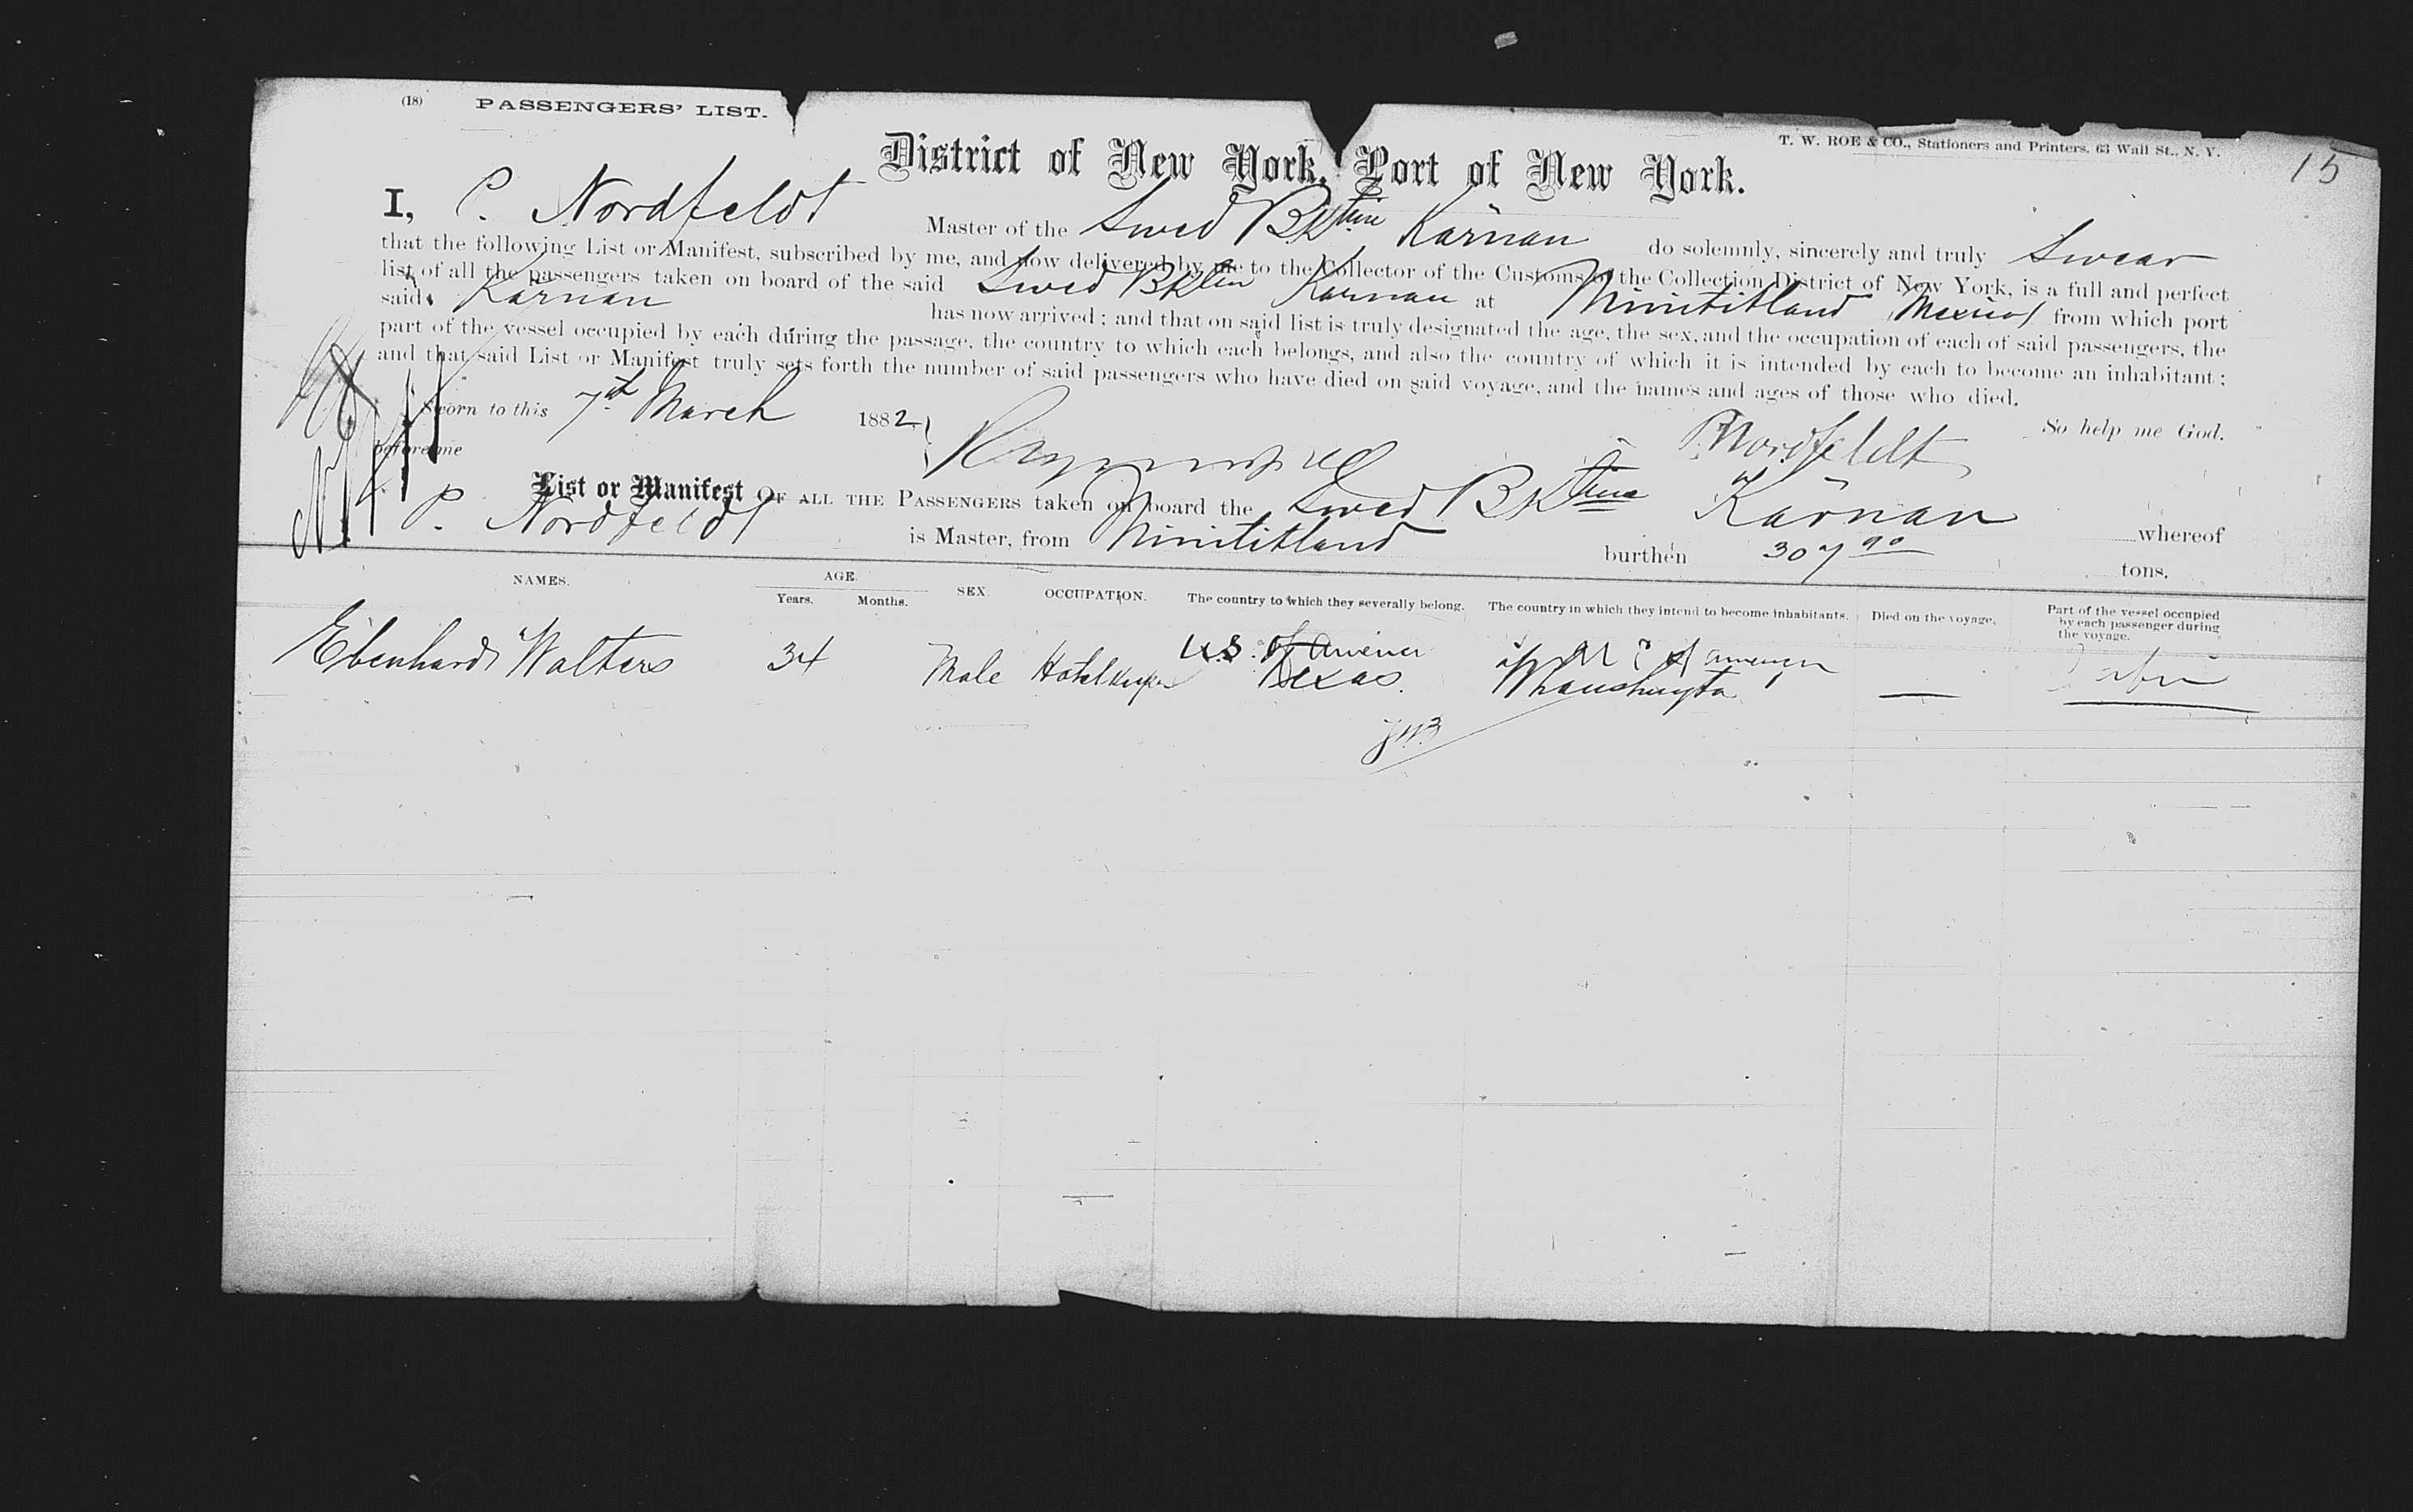 (18) PASSENGERS' LIST.
T. W. ROE & CO., Stationers and Printers, 63 Wall St., N. Y.
15
District of New York, Port of New York.
I, P. Nordfeldt Master of the Swed Bktine Kärnan do solemnly, sincerely and truly Swear
that the following List or Manifest, subscribed by me, and now delivered by me to the Collector of the Customs of the Collection District of New York, is a full and perfect
list of all the passengers taken on board of the said Swed Bktin Kärnan at Minititland Mexico from which port
said Kärnan has now arrived; and that on said list is truly designated the age, the sex, and the occupation of each of said passengers, the
part of the vessel occupied by each during the passage, the country to which each belongs, and also the country of which it is intended by each to become an inhabitant;
and that said List or Manifest truly sets forth the number of said passengers who have died on said voyage, and the names and ages of those who died.
So help me God.
Sworn to this 7th March 1882
before me
P. Nordfeldt
List or Manifest OF ALL THE PASSENGERS taken on board the Swed Bktine Kärnan whereof
P. Nordfeldt is Master, from Minititland burthen 307 90 tons.
NAMES. AGE. SEX. OCCUPATION. The country to which they severally belong. The country in which they intend to become inhabitants. Died on the voyage. Part of the vessel occupied by each passenger during the voyage.
Years. Months.
U.S. of America
Ebenhards Walters 34 Male Hotelkeeper Texas. —